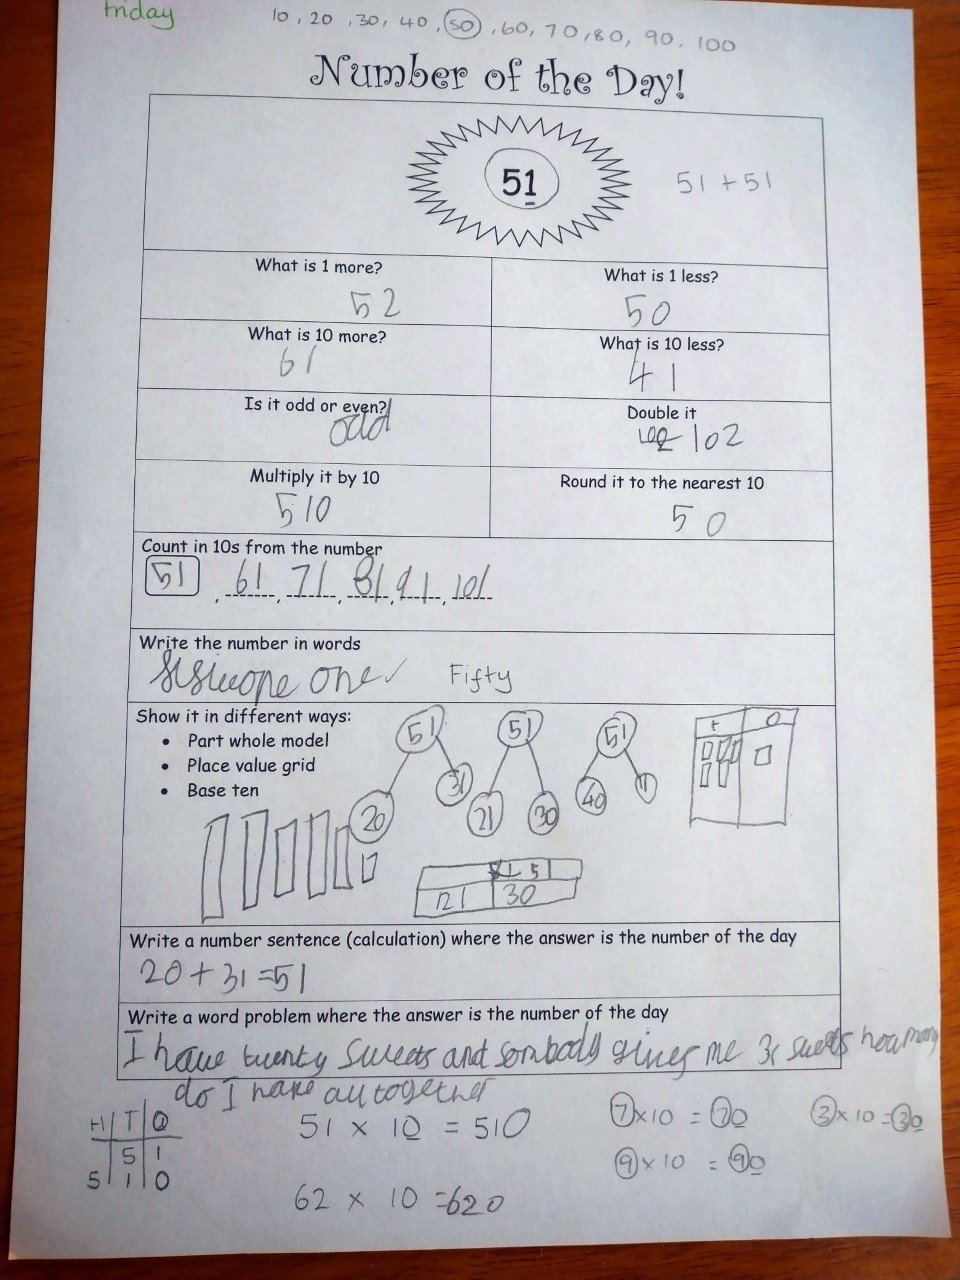 Friday
10, 20, 30, 40, 50, 60, 70, 80, 90, 100
Number of the Day!
51
51 + 51
What is 1 more?
52
What is 1 less?
50
What is 10 more?
61
What is 10 less?
41
Is it odd or even?
odd
Double it
102
Multiply it by 10
510
Round it to the nearest 10
50
Count in 10s from the number
51, 61, 71, 81, 91, 101
Write the number in words
one ✓ Fifty
Show it in different ways:
• Part whole model
• Place value grid
• Base ten
51 51 51
20 31 21 30 40 11
t O
51
21 30
Write a number sentence (calculation) where the answer is the number of the day
20 + 31 = 51
Write a word problem where the answer is the number of the day
I have twenty sweets and sombody gives me 31 sweets how many
do I have alltogether
H T O
5 1
5 1 0
51 x 10 = 510
62 x 10 = 620
7 x 10 = 70
3 x 10 = 30
9 x 10 = 90